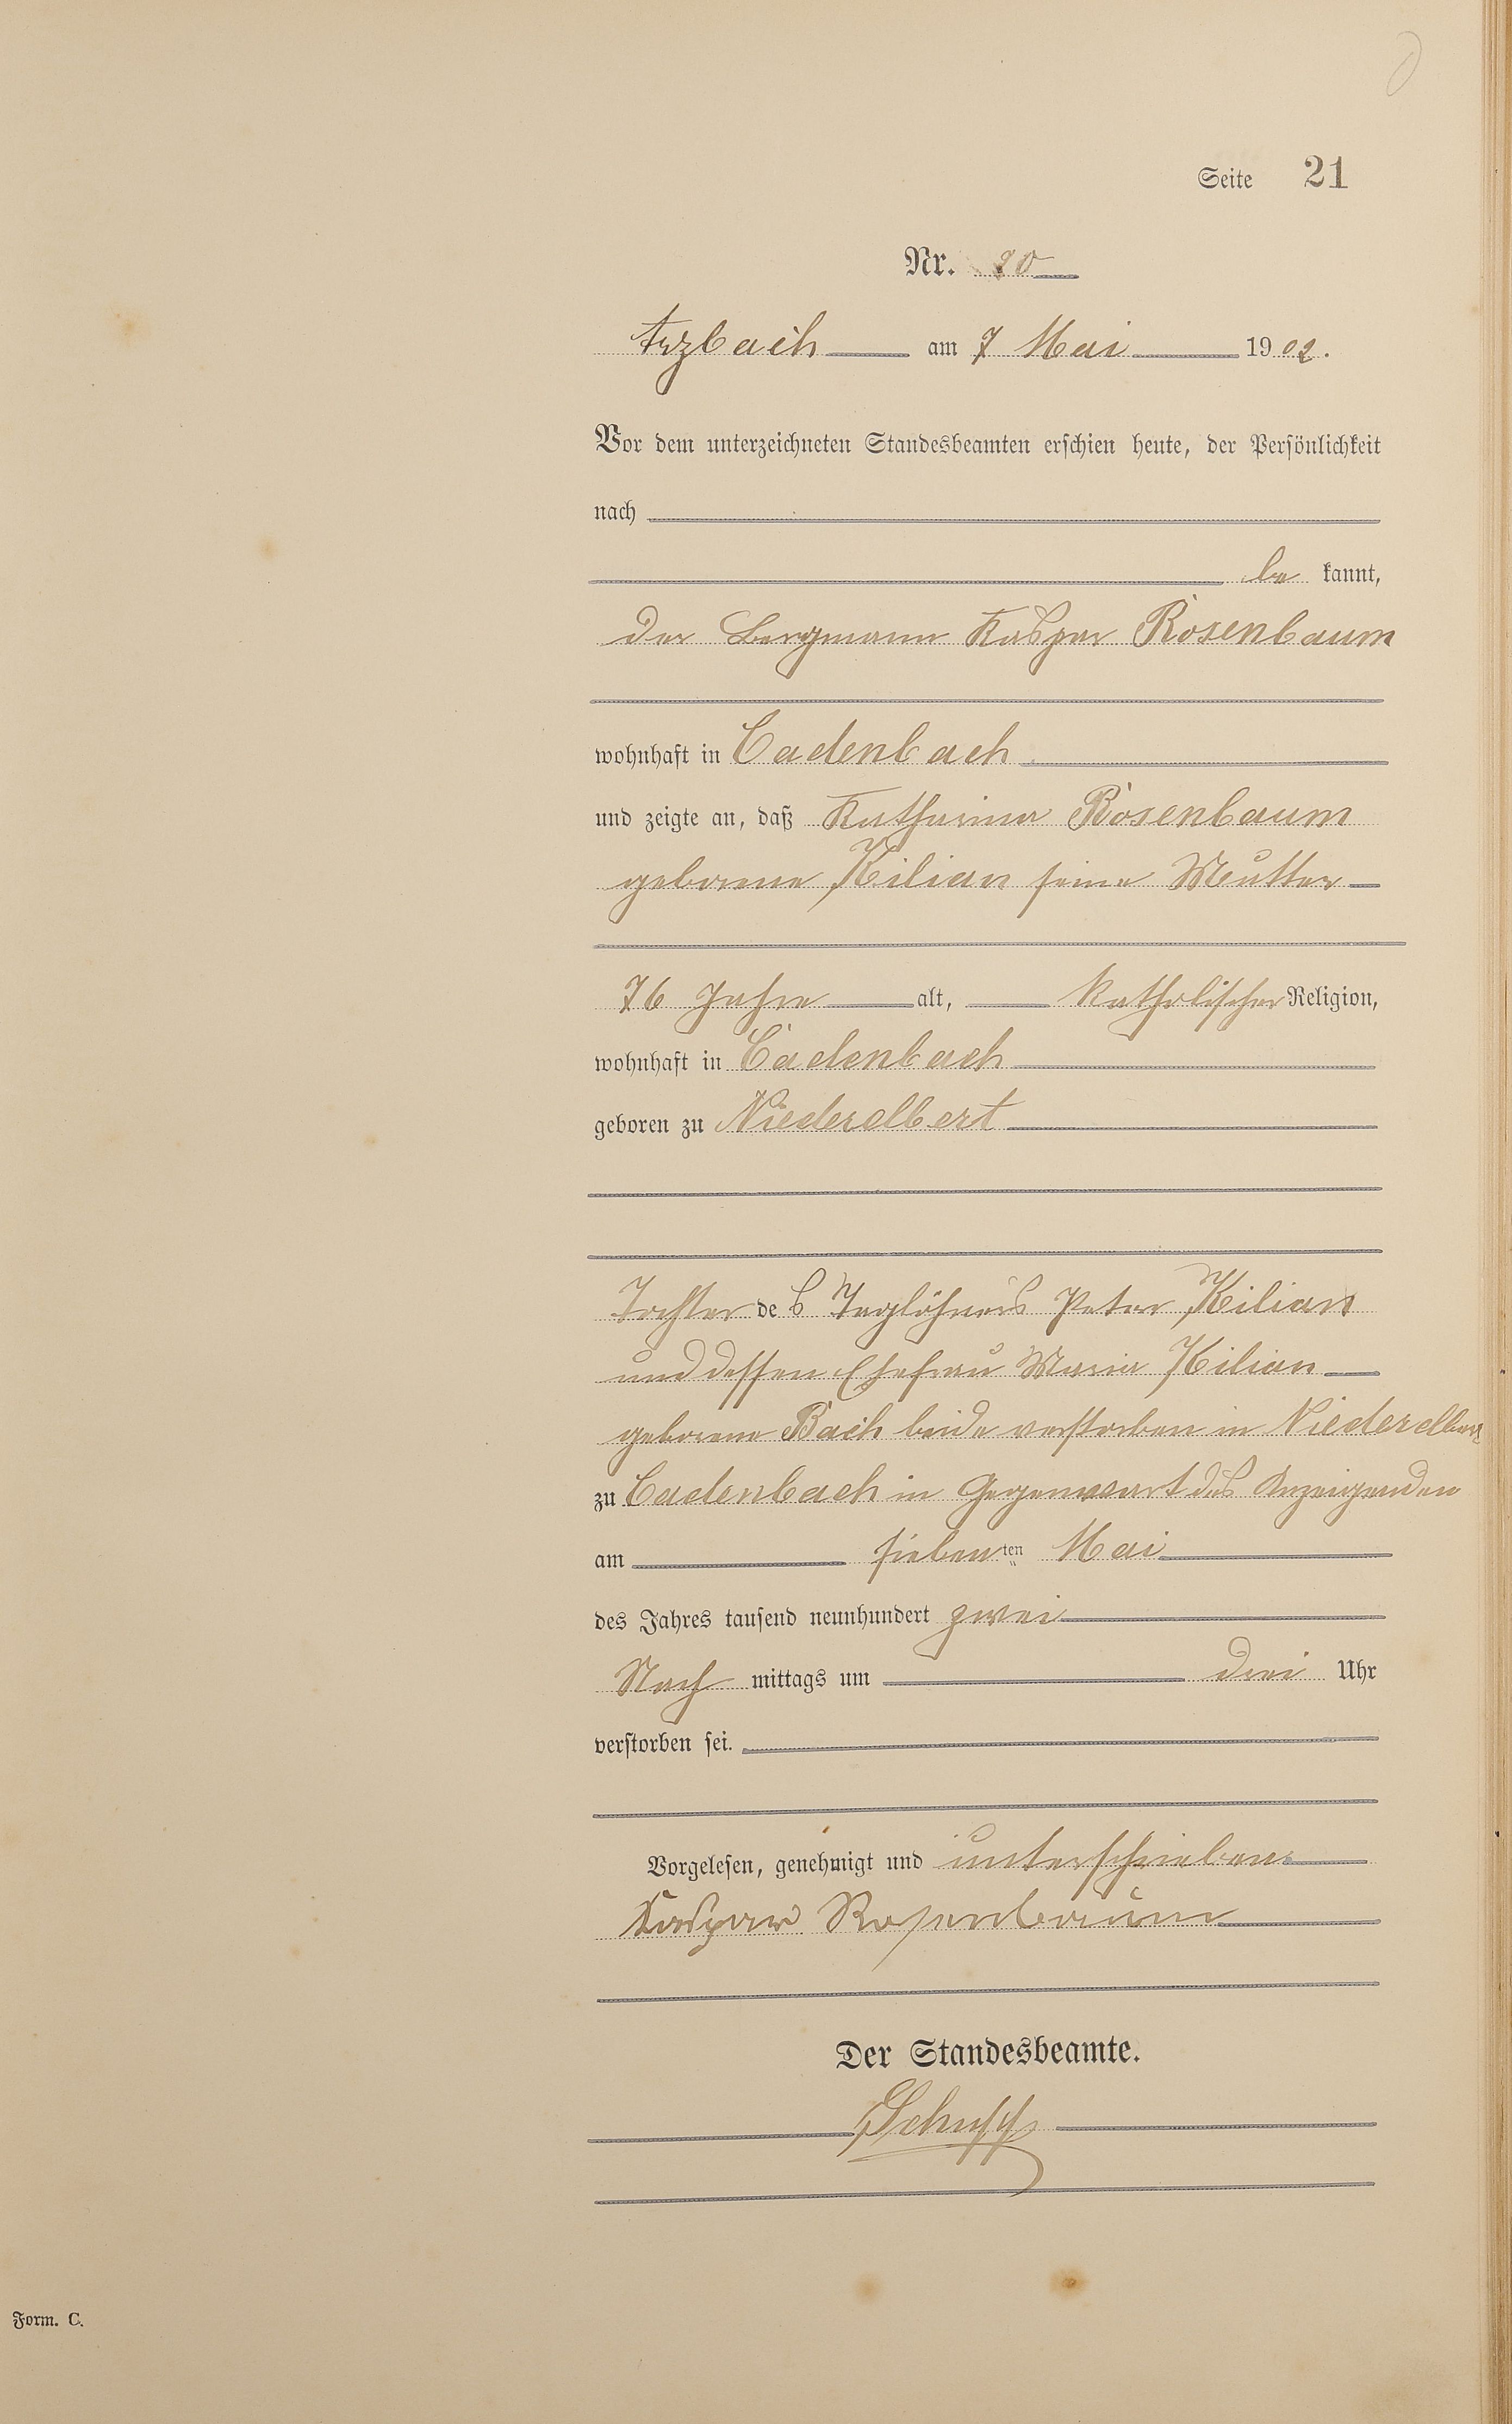 Seite 21
Nr. 20
Arzbach am 7 Mai 1902.
Vor dem unterzeichneten Standesbeamten erschien heute, der Persönlichkeit
nach
be kannt,
der Bergmann Kaspar Rosenbaum
wohnhaft in Cadenbach
und zeigte an, daß Katharina Rosenbaum
geborene Kilian seine Mutter
76 Jahre alt, katholischer Religion,
wohnhaft in Cadenbach
geboren zu Niederelbert
Tochter des Taglöhners Peter Kilian
und dessen Ehefrau Maria Kilian
geborene Bach beide verstorben in Niederelbert
zu Cadenbach in Gegenwart des Anzeigenden
am siebenten Mai
des Jahres tausend neunhundert zwei
Nach mittags um drei Uhr
verstorben sei.
Vorgelesen, genehmigt und unterschrieben
Kaspar Rosenbaum
Der Standesbeamte.
Schupp
Form. C.